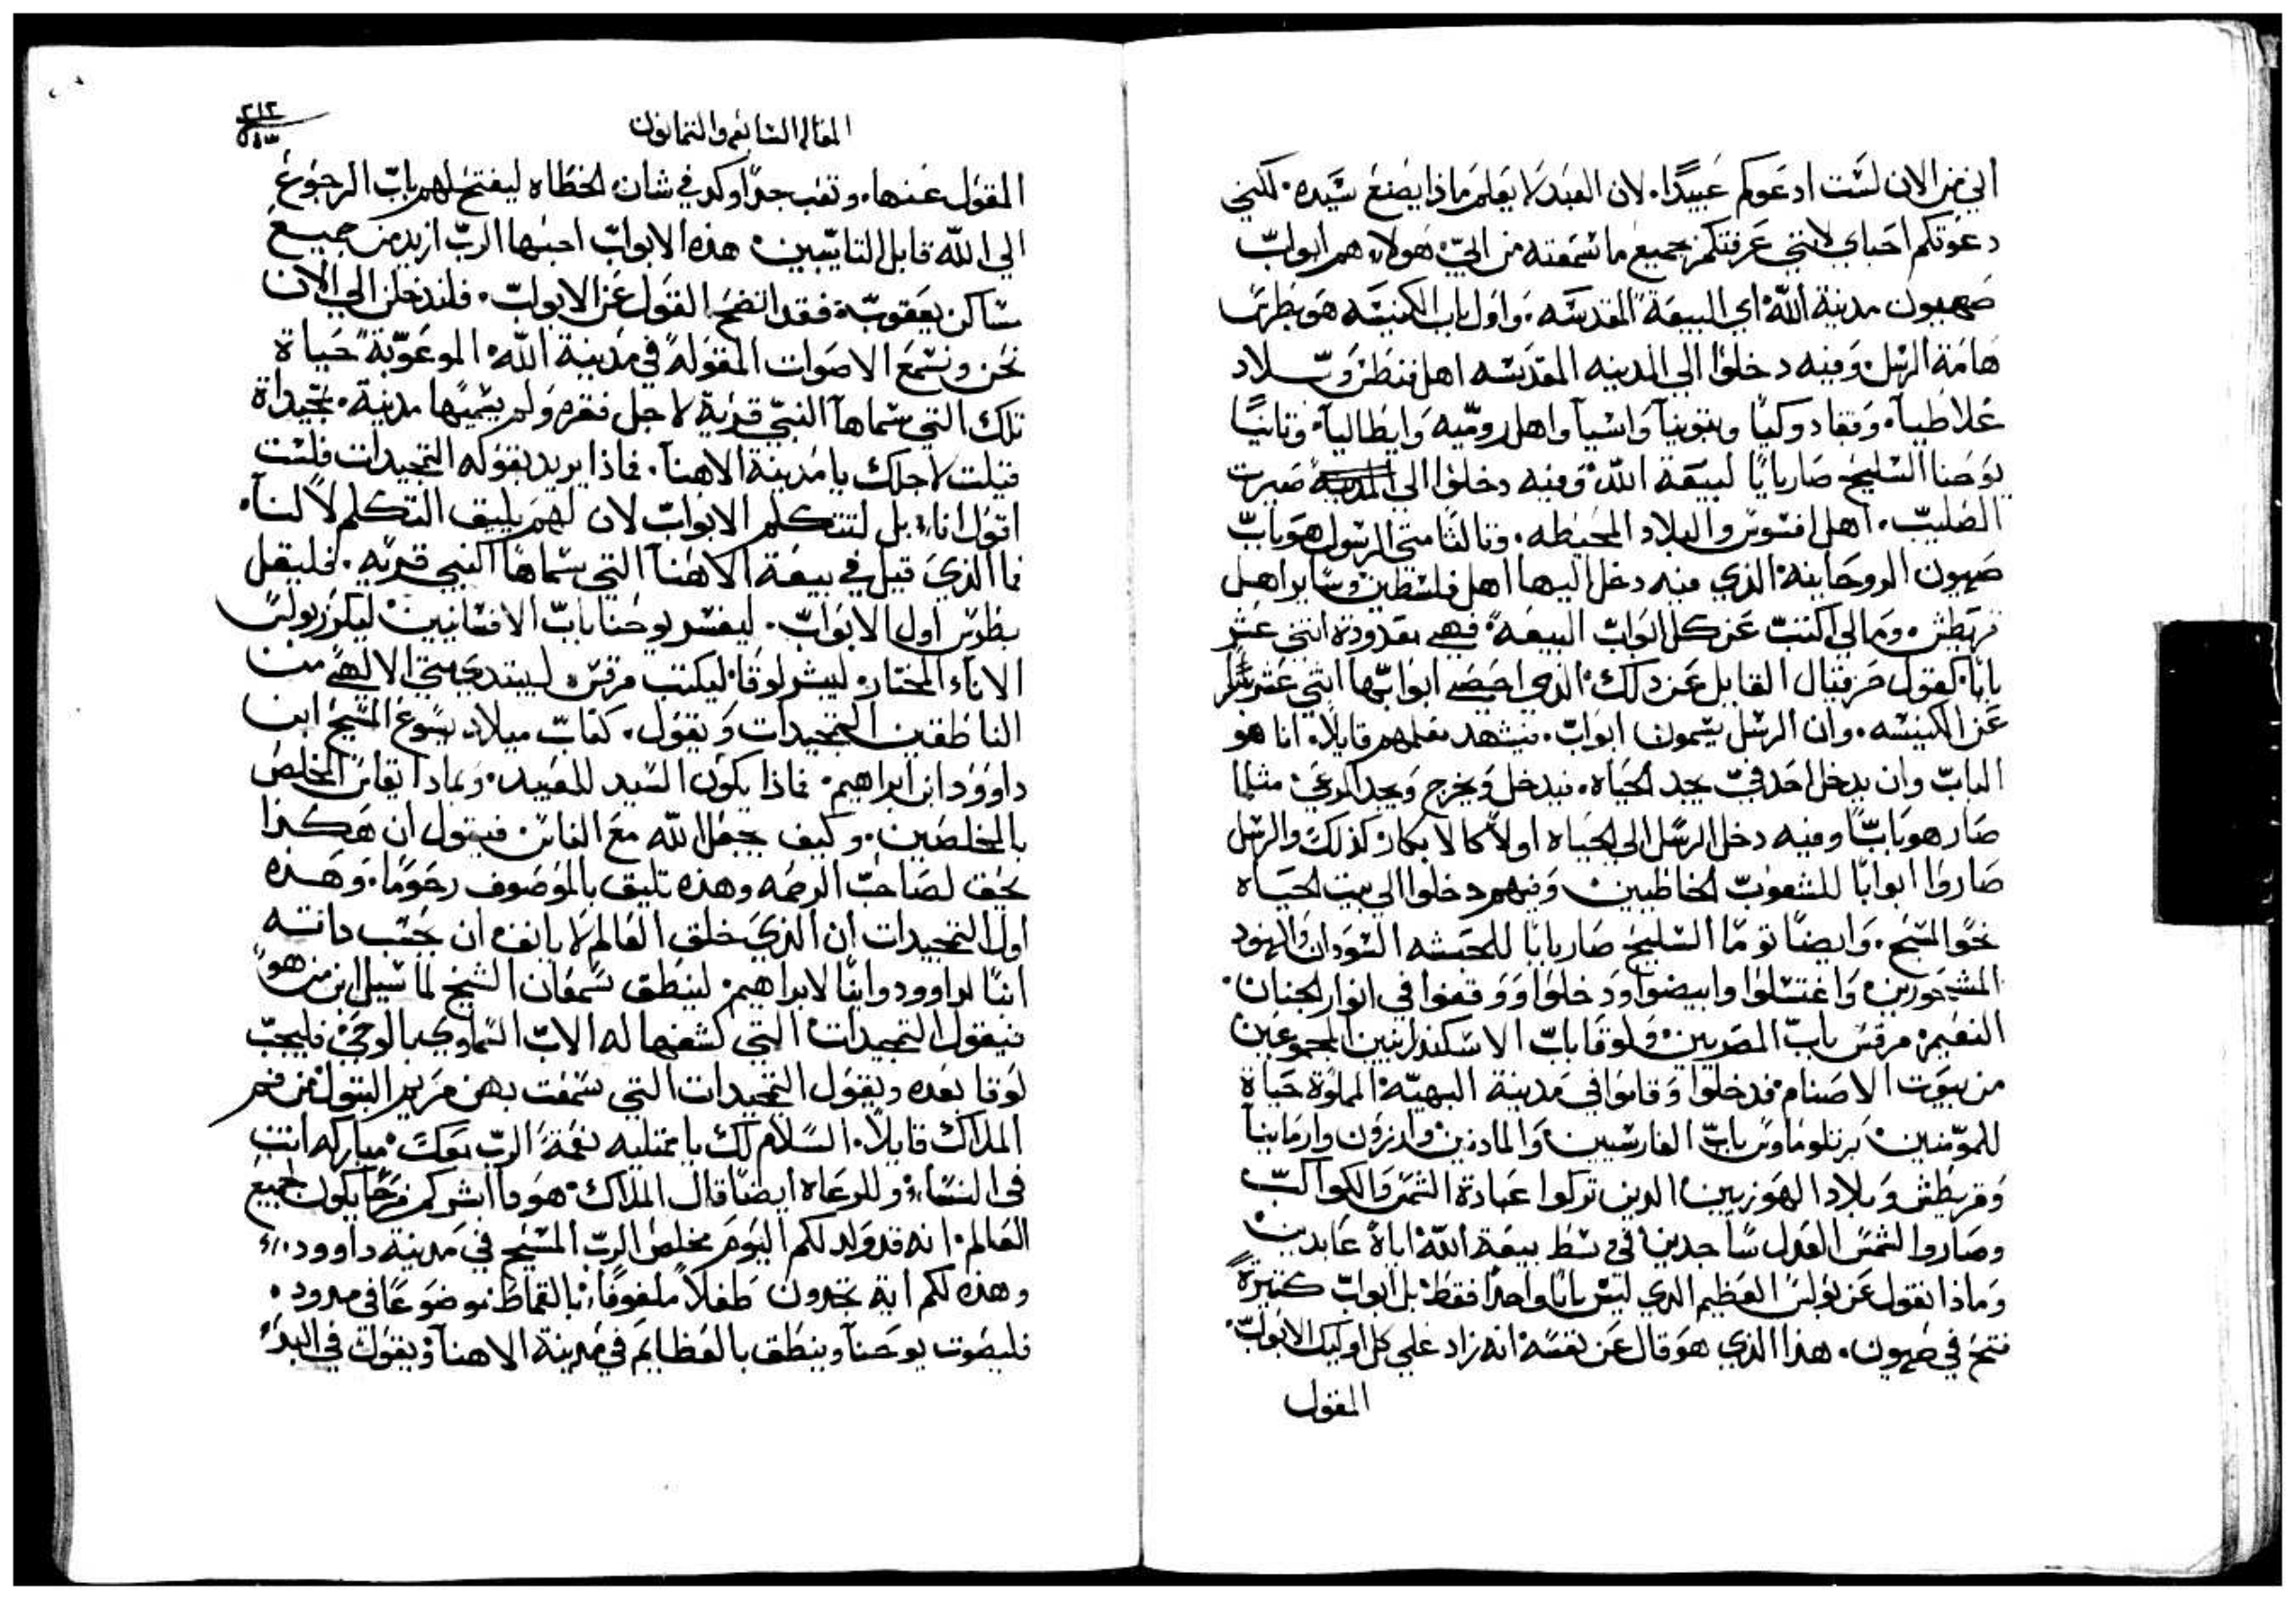 انني من الان لست ادعوكم عبيدًا. لان العبد لا يعلم ماذا يصنع سيده. لكنني
دعوتكم احباي لانني عرفتكم جميع ما سمعته من ابي. هولاء هم ابواب
صهيون مدينة الله اي البيعة المقدسه. واول باب الكنيسه هو بطرس
هامة الرسل. وفيه دخلوا الي المدينه المقدسه اهل فنطس وبلاد
غلاطيا. وقفادوكيا وبتونيا واسيا واهل روميه وايطاليا. وثانيًا
يوحنا السليح صار بابًا لبيعة الله وفيه دخلوا الي المدينة صبرت
الصليب. اهل افسوس والبلاد المحيطه. وثالثًا متي الرسول هو باب
صهيون الروحانيه الذي منه دخل اليها اهل فلسطين وساير اهل
قريطش. ومالي اكتب عن كل ابواب البيعة. فهي معدودة اثني عشر
بابًا. كقول حزقيال القايل عن ذلك. الذي احصي ابوابها اثني عشر
عن الكنيسه. وان الرسل يسمون ابواب. يشهد معلمهم قايلاً. انا هو
الباب وان يدخل احد في يجد الحياه. فيدخل ويخرج ويجد المرعي. مثلما
صار هو بابًا وفيه دخل الرسل الي الحياه اولاً كالابكار كذلك والرسل
صاروا ابوابًا للشعوب الخاطيين وفيهم دخلوا الي بيت الحياه
نحو المسيح. وايضًا توما السليح صار بابًا للحبشه السودان والهنود
المشحورين واغتسلوا وابيضوا ودخلوا ووقفوا في انوار الجنان.
النعيم. مرقس باب المصريين ولوقا باب الاسكندرانيين المجموعين
من بيوت الاصنام. فدخلوا وقاموا في مدينة البهيه. المملوة حياة
للمومنين. برتلوماوس باب الفارسيين والمادنين واندزون وارمانيا
وقريطش وبلاد الهوزيين. الذين تركوا عبادة الشمس والكواكب
وصاروا لشمس العدل ساجدين في وسط بيعة الله. اياه عابدين
وماذا نقول عن بولس العظيم الذي ليس بابًا واحدًا فقط. بل ابواب كثيرة
فتح في صهيون. هذا الذي هو قال عن نفسه. انه زاد علي كل اوليك الابواب.
المقول
٢١٢
المقاله السابعه والثمانون
المقول عنها. وتعب جدًا وكد في شان الخطاه ليفتح لهم باب الرجوع
الي الله قابل التايبين. هذه الابواب احبها الرب ازيد من جميع
مساكن يعقوب. فقد اتضح القول عن الابواب. فلندخلن الي الان
نحن ونسمع الاصوات المقوله في مدينة الله. الموعوبة حياة
تلك التي سماها النبي قرية لاجل فقره ولم يسميها مدينة. تمجيداة
قيلت لاجلك يا مدينة الاهنا. فماذا يريد بقوله التمجيدات فلست
اقول انا. بل لتتكلم الابواب لان لهم يليق التكلم لا لنا.
فما الذي قيل في بيعة الاهنا التي سماها النبي قريه. فليقل
بطرس اول الابواب. ليفسر يوحنا باب الافسانيين ليكرز بولس
الاناء المختار. ليبشر لوقا. ليكتب مرقس. ليبتدي متي الالهي من
الناطقين التمجيدات ويقول. كتاب ميلاد يسوع المسيح ابن
داوود ابن ابراهيم. فماذا يكون السيد للعبيد. وبماذا يقاس المخلص
بالمخلصين. وكيف يجعل الله مع الناس. فيقول ان هكذا
يحق لصاحب الرحمه وهذه تليق بالموصوف رحومًا. وهذه
اول التمجيدات ان الذي خلق العالم لا يانف ان يحسب ذاته
ابنًا لداوود وابنًا لابراهيم. لينطق سمعان الشيخ لما سيل ابن من هو
فيقول التمجيدات التي كشفها له الاب السماوي بالوحي. فليجب
لوقا بعده ويقول التمجيدات التي سمعت بهن مريم البتول من فم
الملاك قايلاً. السلام لك يا ممتليه نعمة. الرب معك. مباركه انت
في النساء. وللرعاه ايضًا قال الملاك. هوذا ابشركم فرحًا يكون لجميع
العالم. انه قد ولد لكم اليوم مخلص الرب المسيح في مدينة داوود.
وهذه لكم اية تجدون طفلاً ملفوفًا. بالقماط. موضوعًا في مدود.
فليصوت يوحنا وينطق بالعظايم في مدينة الاهنا ويقول في البدء